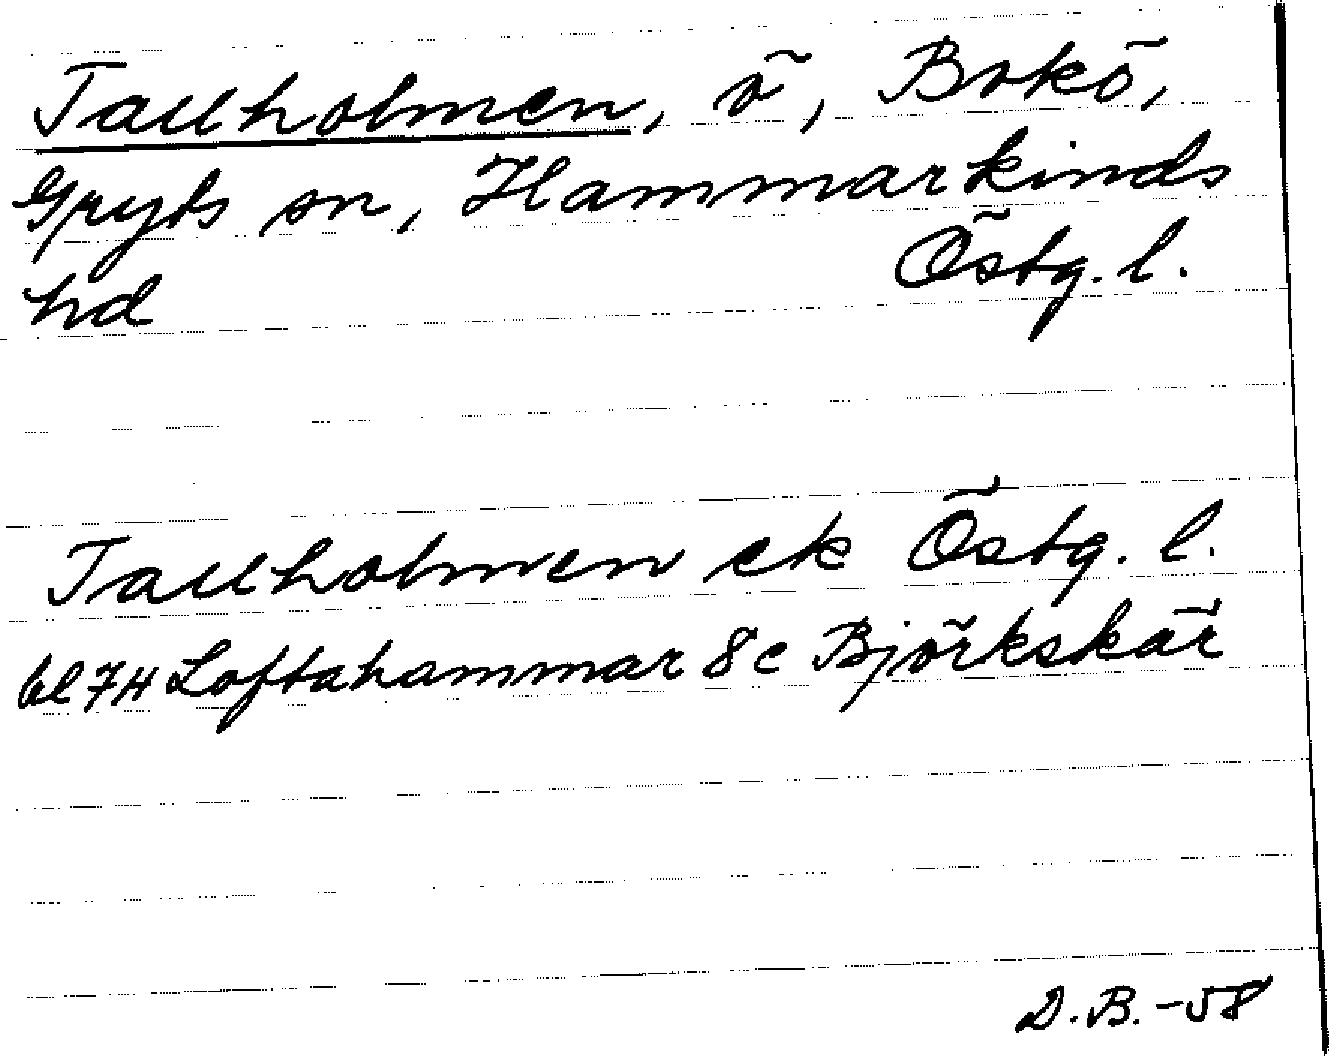 Tallholmen, ö, Bokö,
Gryts sn, Hammarkinds
hd Östg. l.
Tallholmen ek Östg. l.
bl 7H Loftahammar 8c Björkskär
D.B. -58